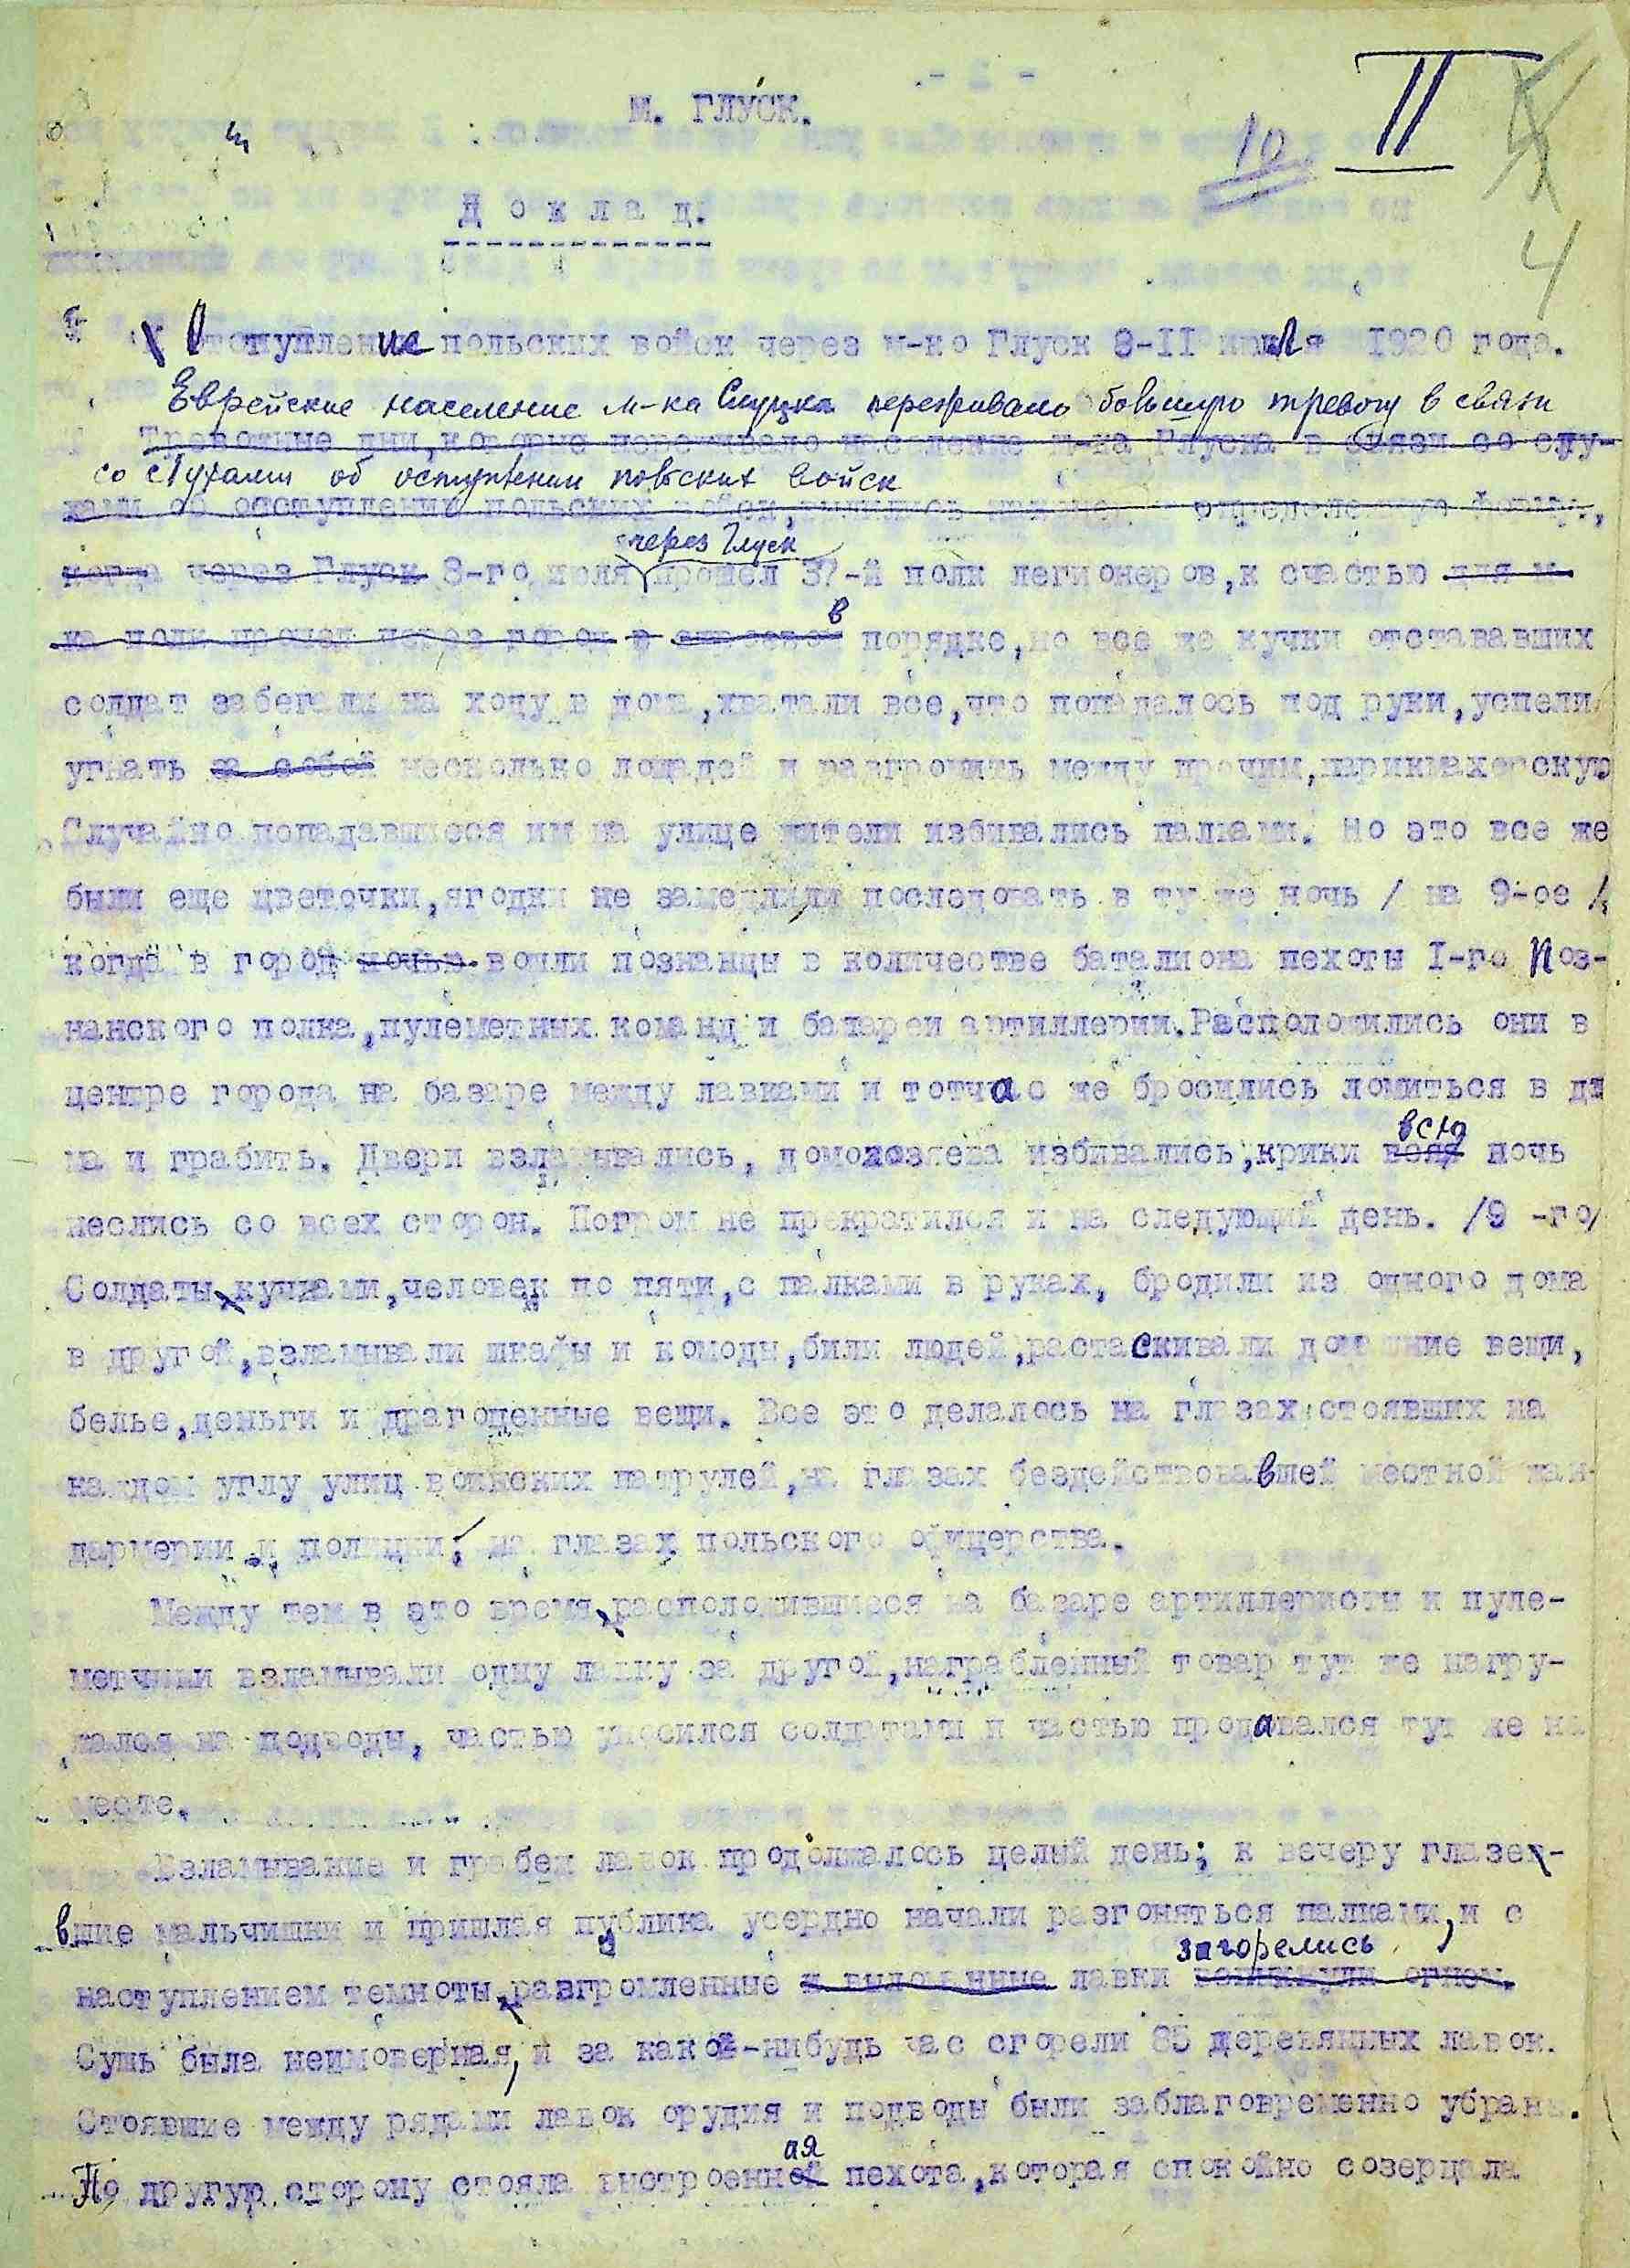 м. ГЛУСК.
II
10
4
Д о к л а д.
Отступление польских войск через м-ко Глуск 8-II июля 1920 года.
Еврейские население м-ка Слуцка переживало большую тревогу в связи
Тревожные дни, которые переживало население м-ка Глуска в связи со слу-
со слухами об оступлении польских войск
хами об отступлении польских войск, вылились в определенную форму,
через Глуск
когда через Глуск 8-го июля прошел 37-й полк легионеров, к счастью для м-
в
ка полк прошел через город в порядке, но все же кучки отстававших
солдат забегали на ходу в дома, хватали все, что попадалось под руки, успели
угнать за собой несколько лошадей и разгромить между прочим, парикмахерскую
Случайно попадавшиеся им на улице жители избивались палками. Но это все же
были еще цветочки, ягодки не замедлили последовать в ту же ночь / на 9-ое /,
когда в город ночью вошли познанцы в количестве баталиона пехоты I-го Поз-
нанского полка, пулеметных команд и батареи артиллерии. Расположились они в
центре города на базаре между лавками и тотчас же бросились ломиться в до
всю
ма и грабить. Двери взламывались, домохозяева избивались, крики всяя ночь
неслись со всех сторон. Погром не прекратился и на следующий день. /9 -го/
Солдаты кучками, человек по пяти, с палками в руках, бродили из одного дома
в другой, взламывали шкафы и комоды, били людей, растаскивали домашние вещи,
белье, деньги и драгоценные вещи. Все это делалось на глазах стоявших на
каждом углу улиц воинских патрулей, на глазах бездействовавшей местной жан-
дармерии и полиции, на глазах польского офицерства.
Между тем в это время, расположившиеся на базаре артиллеристы и пуле-
метчики взламывали одну лавку за другой, награбленный товар тут же нагру-
жался на подводы, частью уносился солдатами и частью продавался тут же на
месте.
Взламывание и грабеж лавок продолжалось целый день; к вечеру глазе-
вшие мальчишки и пришлая публика усердно начали разгоняться палками, и с
загорелись
наступлением темноты разгромленные и выломанные лавки вспыхнули огнем.
Сушь была неимоверная, и за какой-нибудь час сгорели 85 деревянных лавок.
Стоявшие между рядами лавок орудия и подводы были заблаговременно убраны.
ая
По другую сторону стояла выстроенной пехота, которая спокойно созерцала